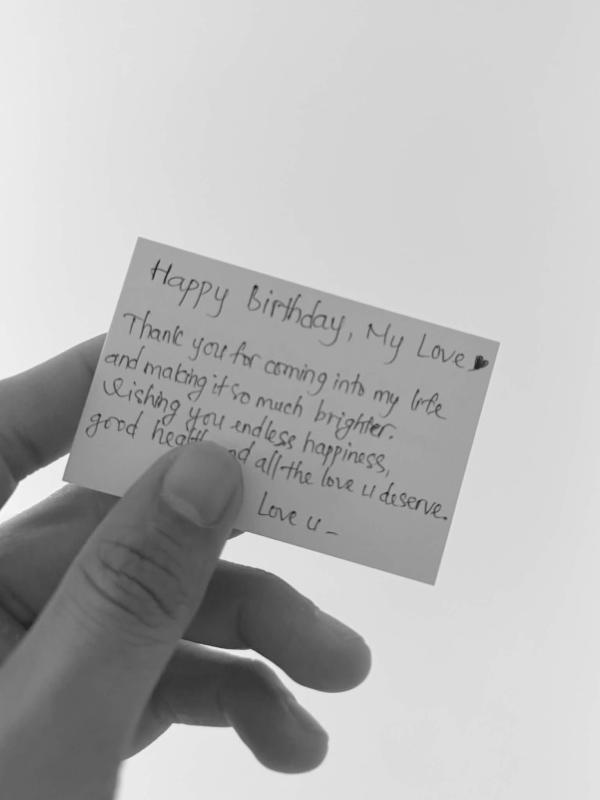 Happy Birthday, My Love ♥
Thank you for coming into my life
and making it so much brighter.
Wishing you endless happiness,
good health and all the love u deserve.
Love u –